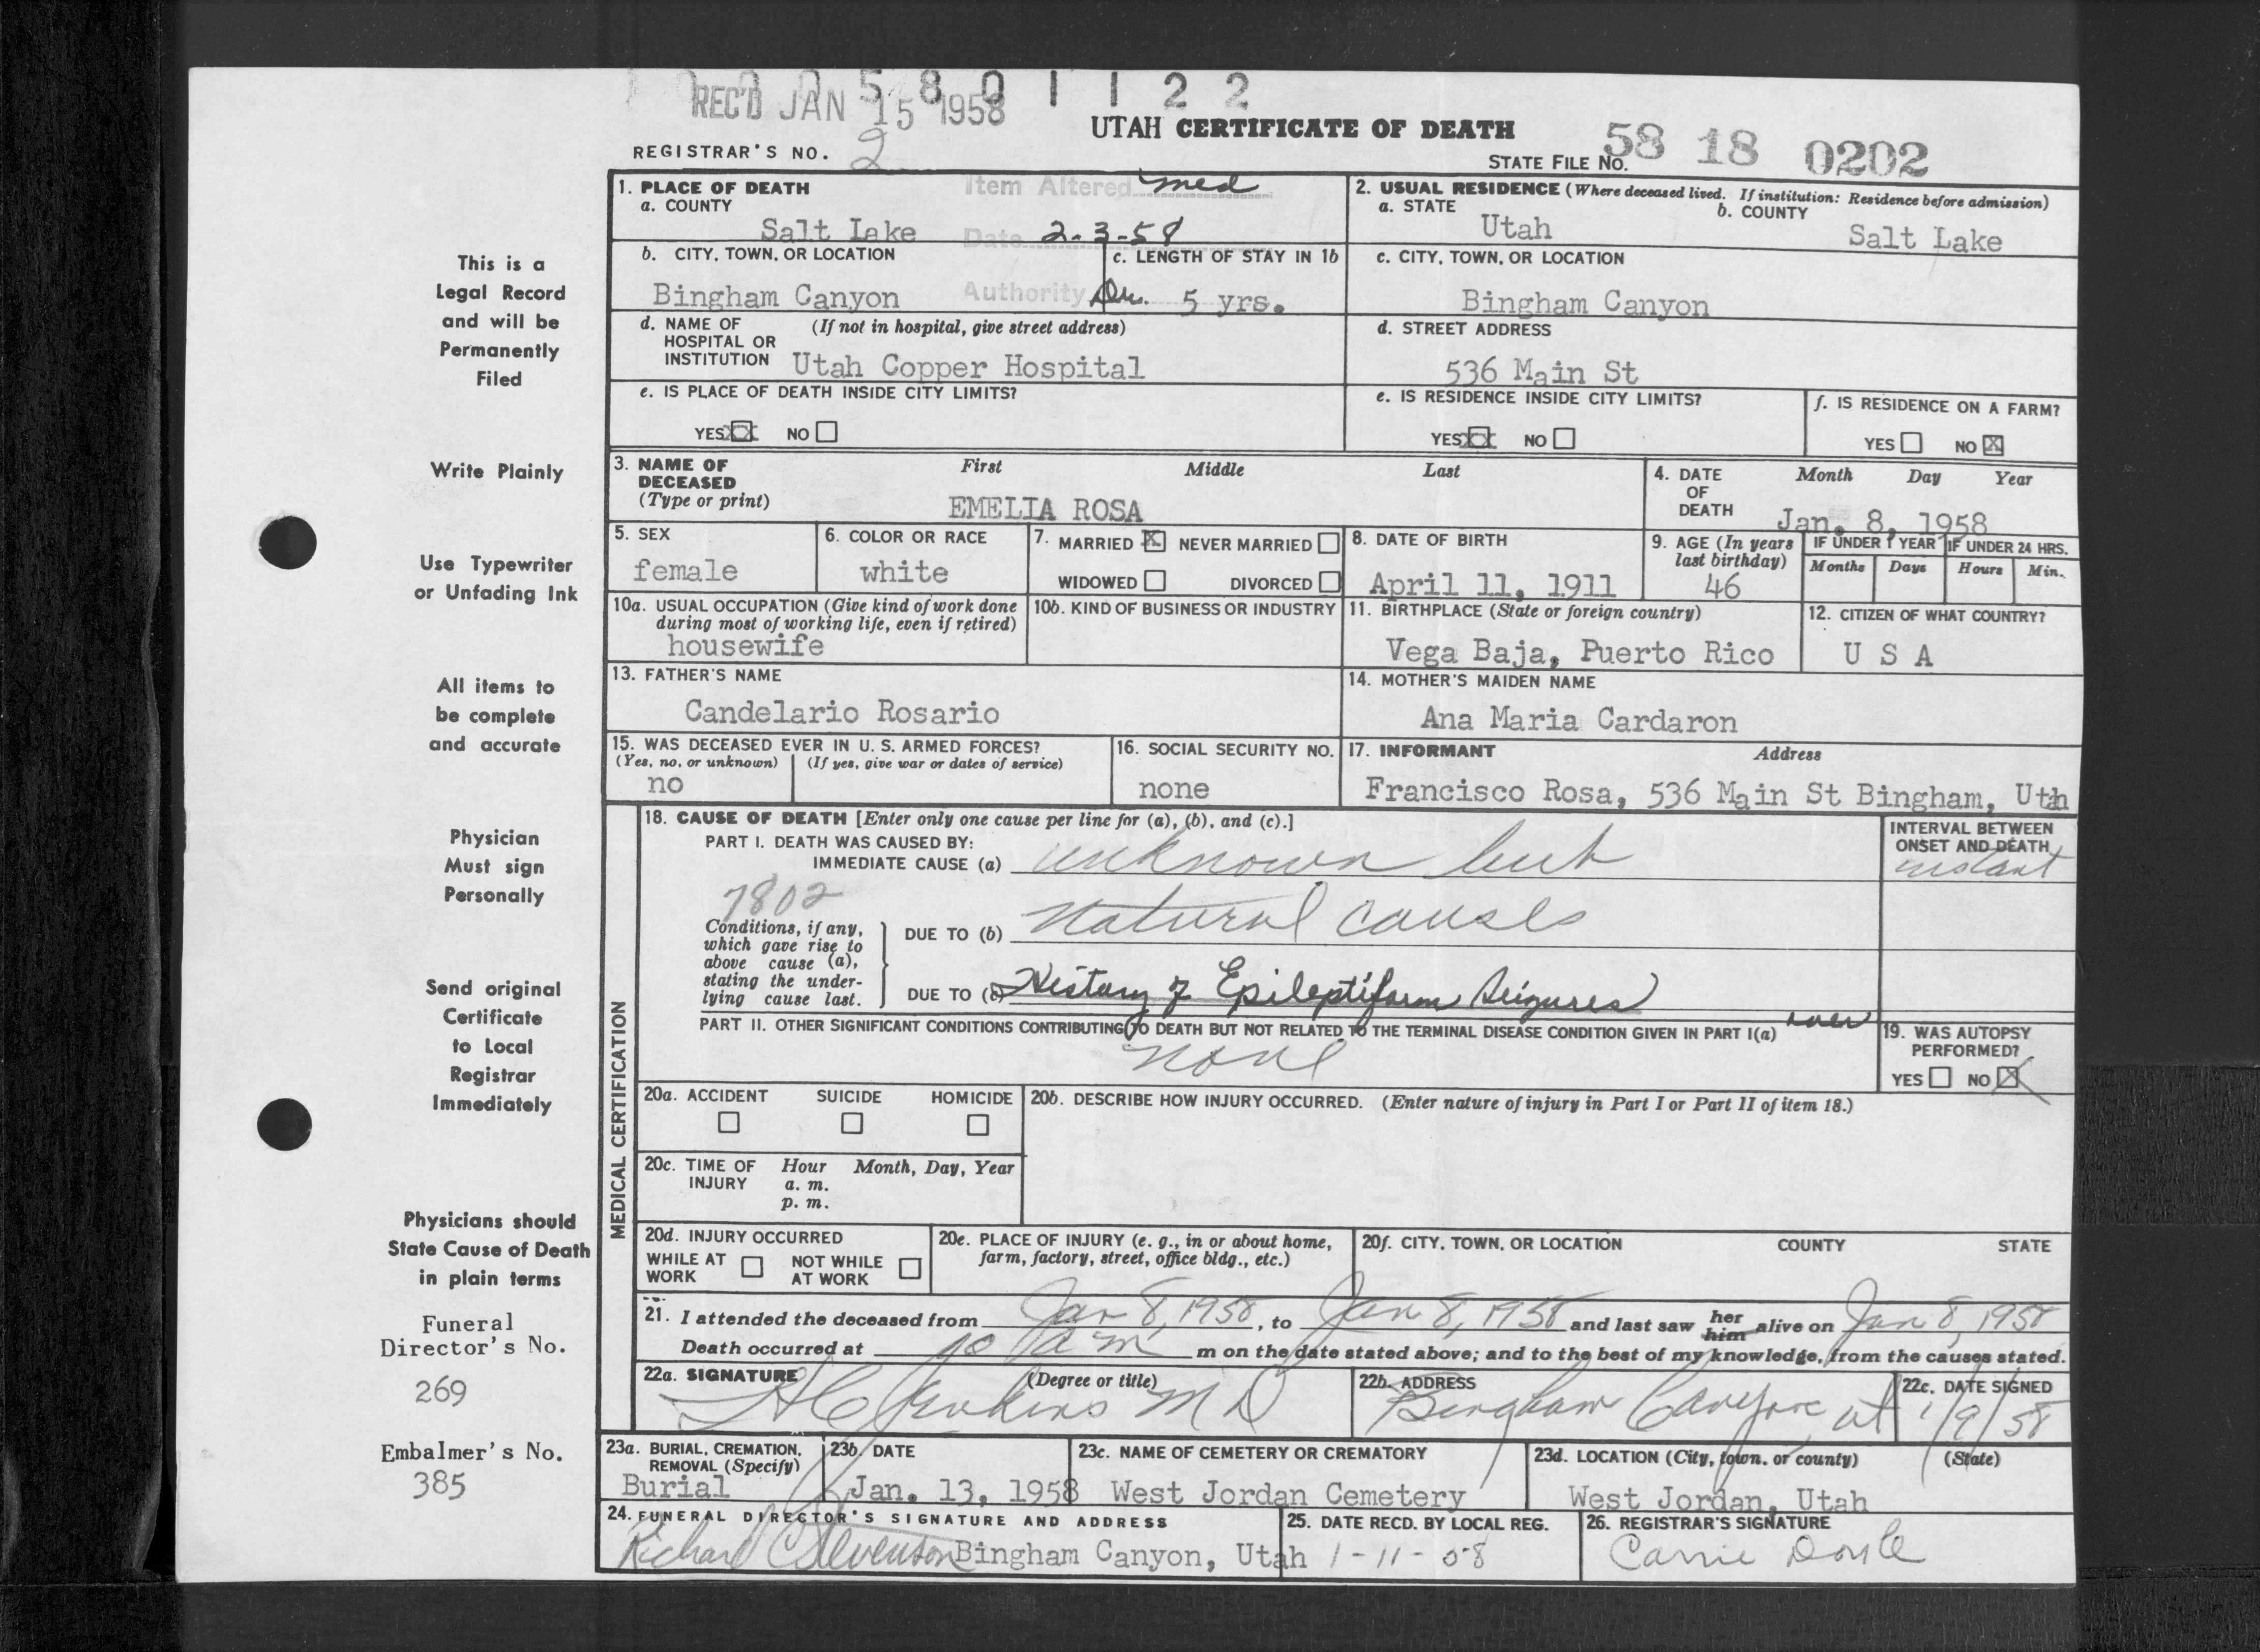 0 0 0 5 8 0 1 1 2 2
REC'D JAN 15 1958
UTAH CERTIFICATE OF DEATH
REGISTRAR'S NO. 2
STATE FILE NO. 58 18 0202
1. PLACE OF DEATH
a. COUNTY
Salt Lake
Item Altered med
Date 2-3-58
2. USUAL RESIDENCE (Where deceased lived. If institution: Residence before admission)
a. STATE
Utah
b. COUNTY
Salt Lake
b. CITY, TOWN, OR LOCATION
Bingham Canyon
Authority Dr.
c. LENGTH OF STAY IN 1b
5 yrs.
c. CITY, TOWN, OR LOCATION
Bingham Canyon
d. NAME OF HOSPITAL OR INSTITUTION
(If not in hospital, give street address)
Utah Copper Hospital
d. STREET ADDRESS
536 Main St
e. IS PLACE OF DEATH INSIDE CITY LIMITS?
YES XX NO
e. IS RESIDENCE INSIDE CITY LIMITS?
YES XX NO
f. IS RESIDENCE ON A FARM?
YES NO X
3. NAME OF DECEASED (Type or print)
First Middle Last
EMELIA ROSA
4. DATE OF DEATH
Month Day Year
Jan. 8, 1958
5. SEX
female
6. COLOR OR RACE
white
7. MARRIED X NEVER MARRIED
WIDOWED DIVORCED
8. DATE OF BIRTH
April 11, 1911
9. AGE (In years last birthday)
46
IF UNDER 1 YEAR
Months Days
IF UNDER 24 HRS.
Hours Min.
10a. USUAL OCCUPATION (Give kind of work done during most of working life, even if retired)
housewife
10b. KIND OF BUSINESS OR INDUSTRY
11. BIRTHPLACE (State or foreign country)
Vega Baja, Puerto Rico
12. CITIZEN OF WHAT COUNTRY?
U S A
13. FATHER'S NAME
Candelario Rosario
14. MOTHER'S MAIDEN NAME
Ana Maria Cardaron
15. WAS DECEASED EVER IN U. S. ARMED FORCES?
(Yes, no, or unknown) (If yes, give war or dates of service)
no
16. SOCIAL SECURITY NO.
none
17. INFORMANT Address
Francisco Rosa, 536 Main St Bingham, Utah
MEDICAL CERTIFICATION
18. CAUSE OF DEATH [Enter only one cause per line for (a), (b), and (c).]
PART I. DEATH WAS CAUSED BY:
IMMEDIATE CAUSE (a) unknown but
INTERVAL BETWEEN ONSET AND DEATH
instant
7802
Conditions, if any, which gave rise to above cause (a), stating the underlying cause last.
DUE TO (b) natural causes
DUE TO (c) History of Epileptiform Seizures
over
PART II. OTHER SIGNIFICANT CONDITIONS CONTRIBUTING TO DEATH BUT NOT RELATED TO THE TERMINAL DISEASE CONDITION GIVEN IN PART I(a)
none
19. WAS AUTOPSY PERFORMED?
YES NO X
20a. ACCIDENT SUICIDE HOMICIDE
20b. DESCRIBE HOW INJURY OCCURRED. (Enter nature of injury in Part I or Part II of item 18.)
20c. TIME OF INJURY
Hour Month, Day, Year
a. m.
p. m.
20d. INJURY OCCURRED
WHILE AT WORK NOT WHILE AT WORK
20e. PLACE OF INJURY (e. g., in or about home, farm, factory, street, office bldg., etc.)
20f. CITY, TOWN, OR LOCATION COUNTY STATE
21. I attended the deceased from Jan 8, 1958, to Jan 8, 1958 and last saw her him alive on Jan 8, 1958
Death occurred at 10 a m m on the date stated above; and to the best of my knowledge, from the causes stated.
22a. SIGNATURE (Degree or title)
H C Jenkins M D
22b. ADDRESS
Bingham Canyon, Ut
22c. DATE SIGNED
1/9/58
23a. BURIAL, CREMATION, REMOVAL (Specify)
Burial
23b. DATE
Jan. 13, 1958
23c. NAME OF CEMETERY OR CREMATORY
West Jordan Cemetery
23d. LOCATION (City, town, or county) (State)
West Jordan, Utah
24. FUNERAL DIRECTOR'S SIGNATURE AND ADDRESS
Richard C Stevenson Bingham Canyon, Utah
25. DATE RECD. BY LOCAL REG.
1-11-58
26. REGISTRAR'S SIGNATURE
Carrie Doyle
This is a
Legal Record
and will be
Permanently
Filed
Write Plainly
Use Typewriter
or Unfading Ink
All items to
be complete
and accurate
Physician
Must sign
Personally
Send original
Certificate
to Local
Registrar
Immediately
Physicians should
State Cause of Death
in plain terms
Funeral
Director's No.
269
Embalmer's No.
385